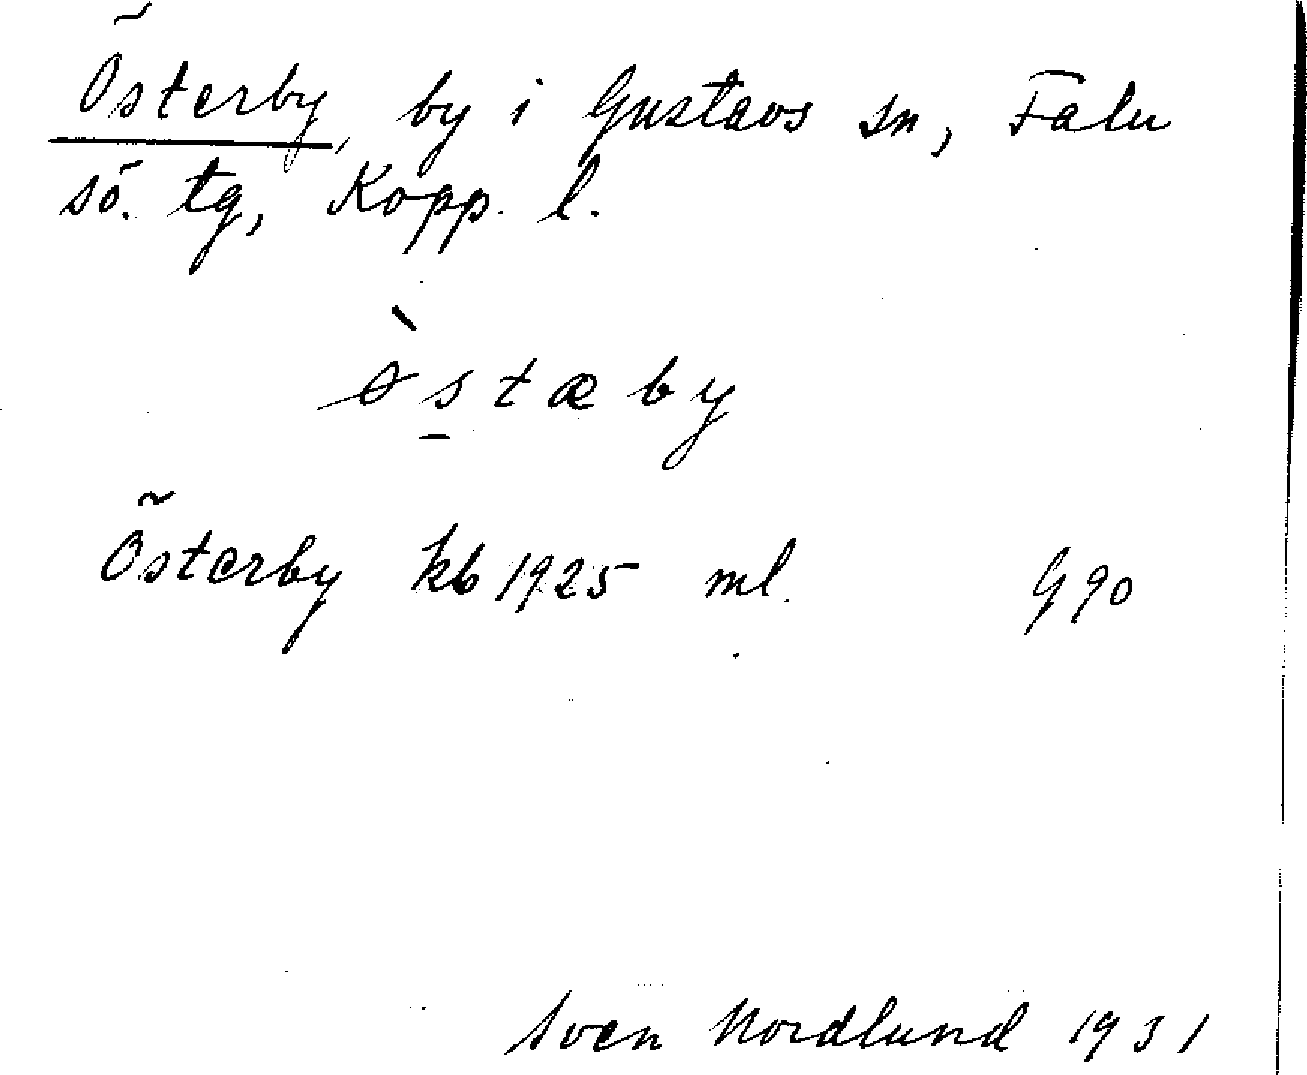 Österby, by i Gustavs sn, Falu
sö. tg, Kopp. l.
ø̀s̠tæby
Österby kb 1925 ml. G 90
Sven Nordlund 1931